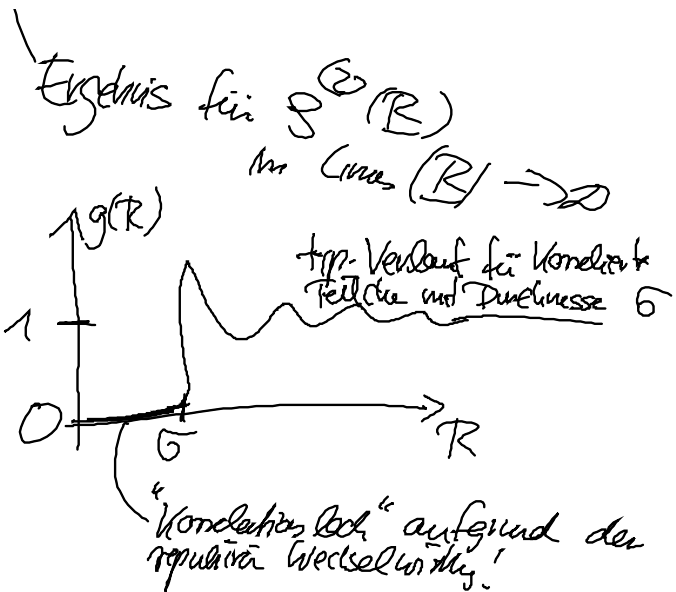 Ergebnis für ρ^(2)(R)
im Limes |R| → ∞
g(R)
typ. Verlauf für korrelierte
Teilche mit Durchmesse σ
1
0
σ
R
"Korrelationsloch" aufgrund der
repulsiven Wechselwirkg!